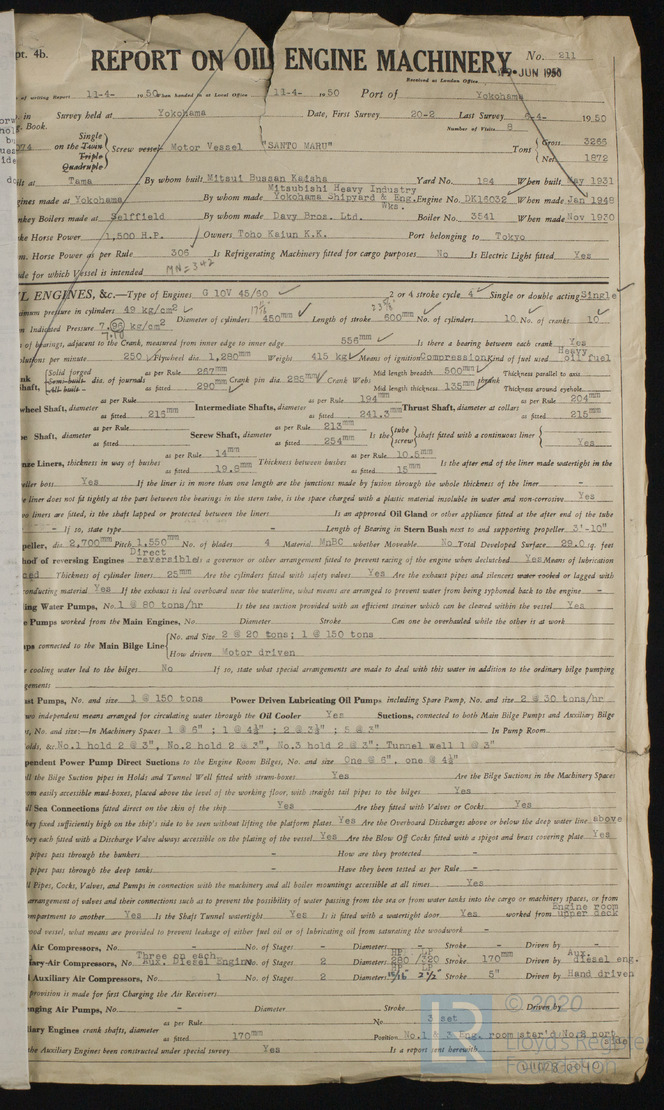 pt. 4b.
REPORT ON OIL ENGINE MACHINERY.
No. 211
Received at London Office
JUN 1950
of writing Report 11-4- 1950 When handed in at Local Office 11-4- 1950 Port of Yokohama
in Survey held at Yokohama Date, First Survey 20-2 Last Survey -4- 1950
g. Book. Number of Visits 8
Single
on the Twin
Triple
Quadruple
Screw vessel Motor Vessel "SANTO MARU"
Tons Gross 3266
Net 1872
ilt at Tama By whom built Mitsui Bussan Kaisha Yard No. 184 When built May 1931
Mitsubishi Heavy Industry
gines made at Yokohama By whom made Yokohama Shipyard & Eng. Wks. Engine No. DK16032 When made Jan 1948
nkey Boilers made at Selffield By whom made Davy Bros. Ltd. Boiler No. 3541 When made Nov 1930
ke Horse Power 1,500 H.P. Owners Toho Kaiun K.K. Port belonging to Tokyo
m. Horse Power as per Rule 306 Is Refrigerating Machinery fitted for cargo purposes No Is Electric Light fitted Yes
de for which Vessel is intended MN=342
L ENGINES, &c.—Type of Engines G 10V 45/60 2 or 4 stroke cycle 4 Single or double acting Single
imum pressure in cylinders 49 kg/cm2 Diameter of cylinders 450mm Length of stroke 600mm No. of cylinders 10 No. of cranks 10
n Indicated Pressure 7.96 kg/cm2
7.10
of bearings, adjacent to the Crank, measured from inner edge to inner edge 556mm Is there a bearing between each crank Yes
olutions per minute 250 Flywheel dia. 1,280mm Weight 415 kg Means of ignition Compression Kind of fuel used Heavy oil fuel
Solid forged
Semi-built
All built
dia. of journals as per Rule 267mm
as fitted 290mm
Crank pin dia. 285mm Crank Webs Mid length breadth 500mm
Mid length thickness 135mm shrunk
Thickness parallel to axis
Thickness around eyehole
wheel Shaft, diameter as per Rule
as fitted 215mm
Intermediate Shafts, diameter as per Rule 194mm
as fitted 241.3mm
Thrust Shaft, diameter at collars as per Rule 204mm
as fitted 215mm
e Shaft, diameter as per Rule
as fitted
Screw Shaft, diameter as per Rule 213mm
as fitted 254mm
Is the tube screw shaft fitted with a continuous liner Yes
nze Liners, thickness in way of bushes as per Rule 14mm
as fitted 19.8mm
Thickness between bushes as per Rule 10.5mm
as fitted 15mm
Is the after end of the liner made watertight in the
eller boss Yes If the liner is in more than one length are the junctions made by fusion through the whole thickness of the liner -
e liner does not fit tightly at the part between the bearings in the stern tube, is the space charged with a plastic material insoluble in water and non-corrosive Yes
o liners are fitted, is the shaft lapped or protected between the liners Is an approved Oil Gland or other appliance fitted at the after end of the tube
- If so, state type - Length of Bearing in Stern Bush next to and supporting propeller 3'-10"
peller, dia. 2,700mm Pitch 1,550mm No. of blades 4 Material MnBC whether Moveable No Total Developed Surface 29.0 sq. feet
hod of reversing Engines Direct reversible Is a governor or other arrangement fitted to prevent racing of the engine when declutched Yes Means of lubrication
ced Thickness of cylinder liners 25mm Are the cylinders fitted with safety valves Yes Are the exhaust pipes and silencers water cooled or lagged with
onducting material Yes If the exhaust is led overboard near the waterline, what means are arranged to prevent water from being syphoned back to the engine -
ling Water Pumps, No. 1 @ 80 tons/hr Is the sea suction provided with an efficient strainer which can be cleared within the vessel Yes
e Pumps worked from the Main Engines, No. Diameter Stroke Can one be overhauled while the other is at work
ps connected to the Main Bilge Line No. and Size 2 @ 20 tons; 1 @ 150 tons
How driven Motor driven
e cooling water led to the bilges No If so, state what special arrangements are made to deal with this water in addition to the ordinary bilge pumping
gements
ast Pumps, No. and size 1 @ 150 tons Power Driven Lubricating Oil Pumps, including Spare Pump, No. and size 2 @ 30 tons/hr
wo independent means arranged for circulating water through the Oil Cooler Yes Suctions, connected to both Main Bilge Pumps and Auxiliary Bilge
s, No. and size:—In Machinery Spaces 1 @ 6" ; 1 @ 4½" ; 2 @ 3½" ; 5 @ 3" In Pump Room
olds, &c. No.1 hold 2 @ 3", No.2 hold 2 @ 3", No.3 hold 2 @ 3"; Tunnel well 1 @ 3"
pendent Power Pump Direct Suctions to the Engine Room Bilges, No. and size One @ 6", one @ 4½"
ll the Bilge Suction pipes in Holds and Tunnel Well fitted with strum-boxes Yes Are the Bilge Suctions in the Machinery Spaces
om easily accessible mud-boxes, placed above the level of the working floor, with straight tail pipes to the bilges Yes
ll Sea Connections fitted direct on the skin of the ship Yes Are they fitted with Valves or Cocks Yes
hey fixed sufficiently high on the ship's side to be seen without lifting the platform plates Yes Are the Overboard Discharges above or below the deep water line above
hey each fitted with a Discharge Valve always accessible on the plating of the vessel Yes Are the Blow Off Cocks fitted with a spigot and brass covering plate Yes
pipes pass through the bunkers - How are they protected -
pipes pass through the deep tanks - Have they been tested as per Rule -
ll Pipes, Cocks, Valves, and Pumps in connection with the machinery and all boiler mountings accessible at all times Yes
arrangement of valves and their connections such as to prevent the possibility of water passing from the sea or from water tanks into the cargo or machinery spaces, or from
mpartment to another Yes Is the Shaft Tunnel watertight Yes Is it fitted with a watertight door Yes worked from Engine room upper deck
ood vessel, what means are provided to prevent leakage of either fuel oil or of lubricating oil from saturating the woodwork -
Air Compressors, No. - No. of Stages - Diameters - Stroke - Driven by -
iary Air Compressors, No. Three on each Aux. Diesel Engine No. of Stages 2 Diameters HP LP 280 /220 Stroke 170mm Driven by Aux. diesel eng.
l Auxiliary Air Compressors, No. 1 No. of Stages 2 Diameters HP LP 2½" Stroke 5" Driven by Hand driven
provision is made for first Charging the Air Receivers
nging Air Pumps, No. - Diameter Stroke Driven by -
iliary Engines crank shafts, diameter as per Rule
as fitted 170mm
No. 3 set
Position No.1 & 3 Eng. room star'd No.2 port side
the Auxiliary Engines been constructed under special survey Yes Is a report sent herewith
© 2020
Lloyd's Register
Foundation